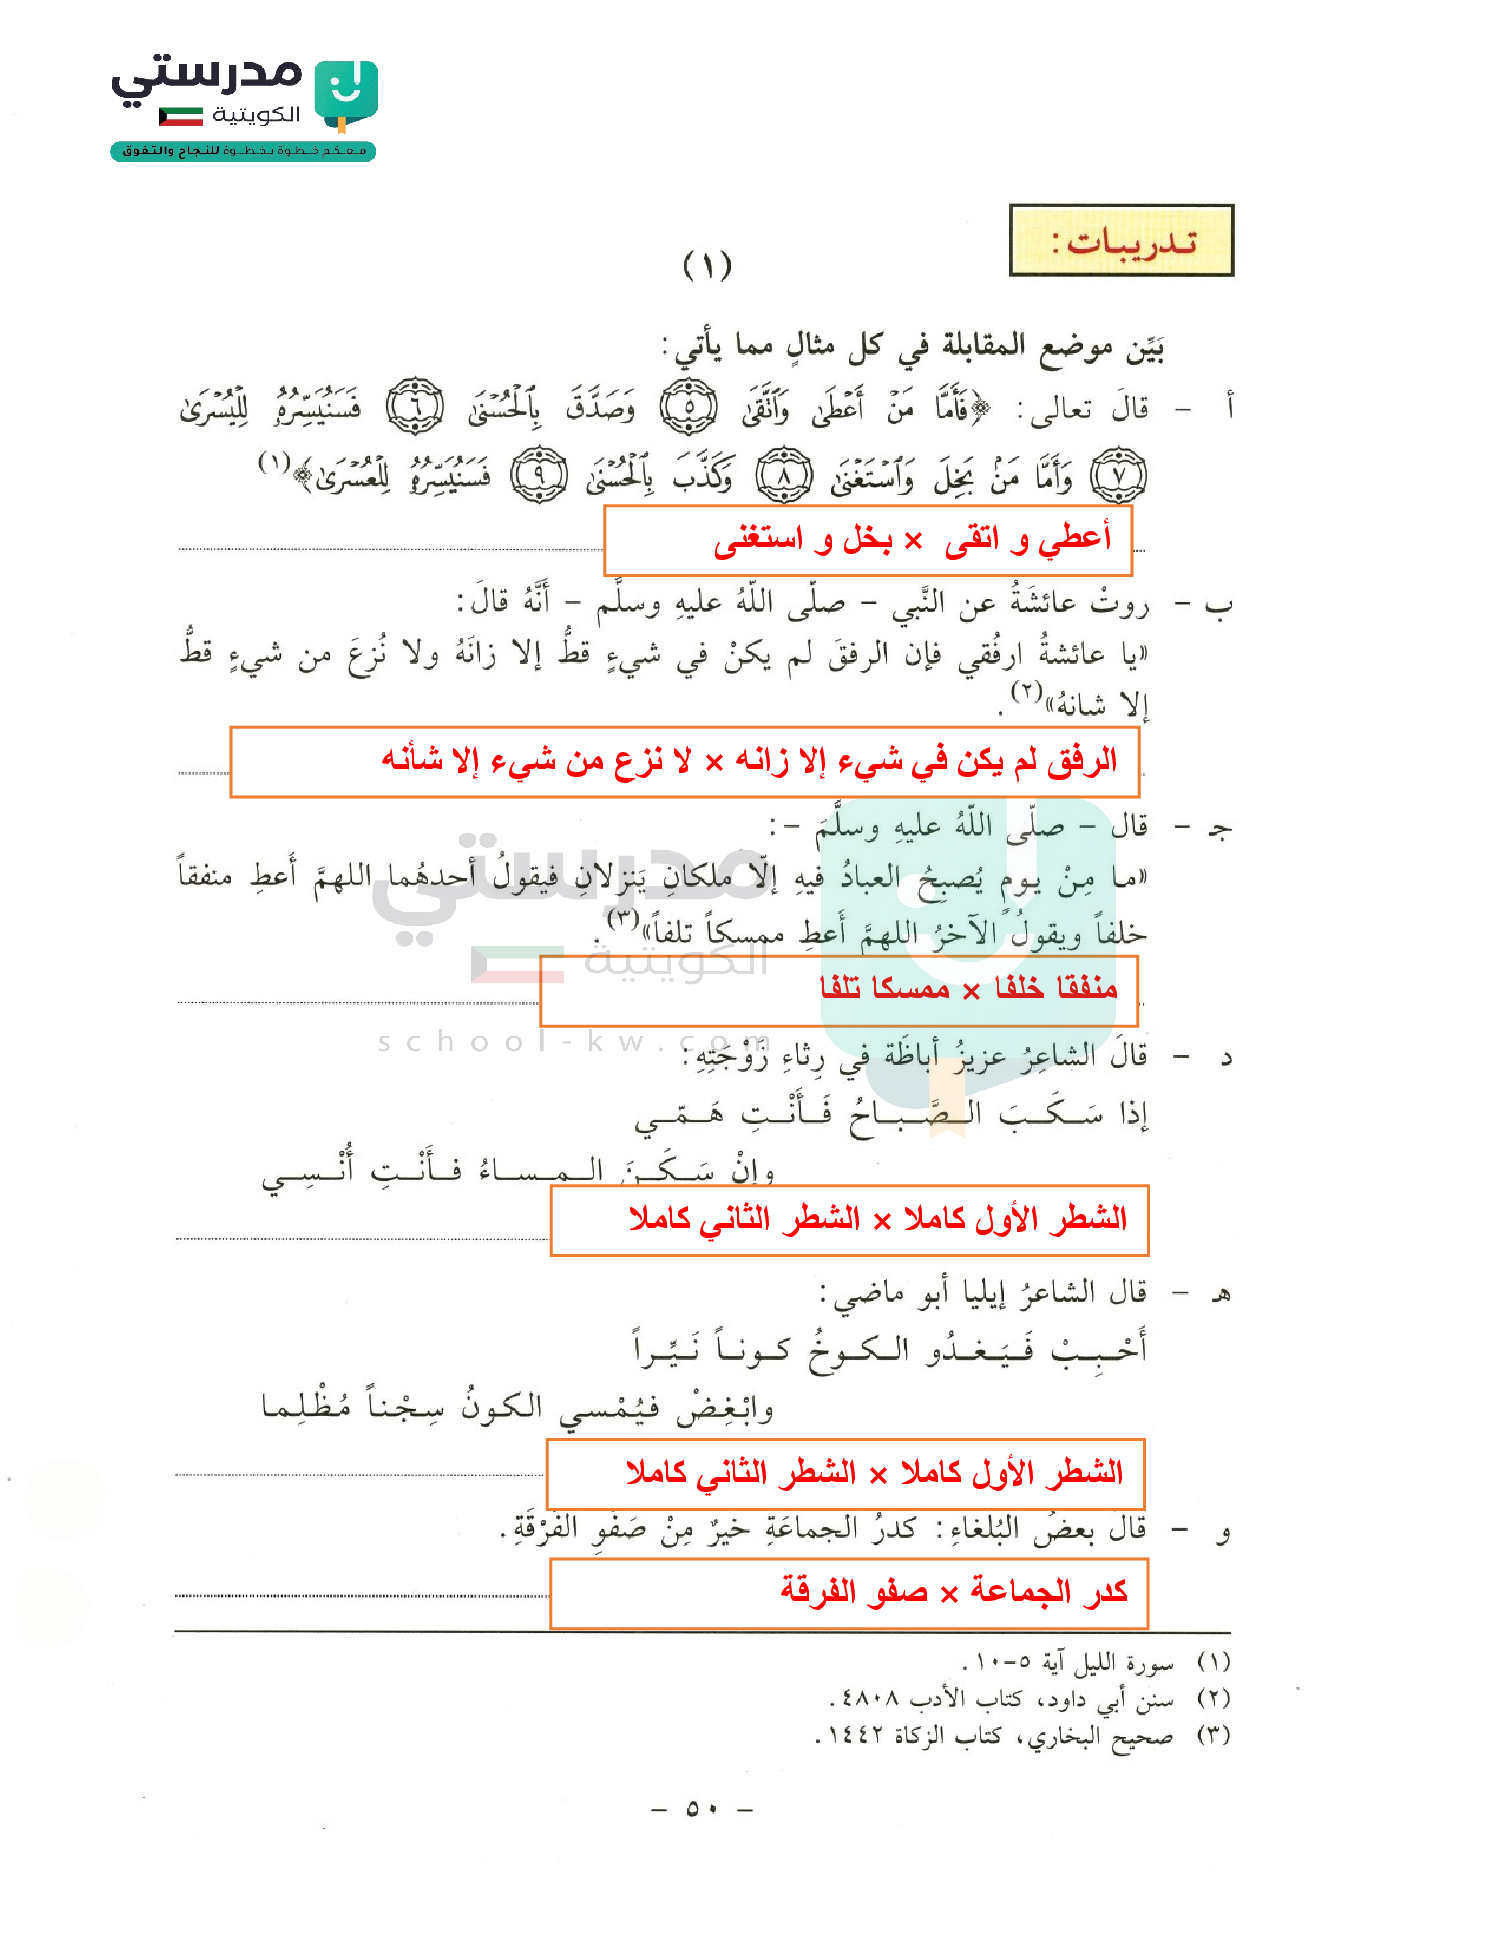 مدرستي
الكويتية
معكم خطوة بخطوة للنجاح والتفوق
تدريبات:
(١)
بَيِّن موضع المقابلة في كل مثالٍ مما يأتي:
أ - قالَ تعالى: ﴿فَأَمَّا مَنْ أَعْطَىٰ وَٱتَّقَىٰ ٥ وَصَدَّقَ بِٱلْحُسْنَىٰ ٦ فَسَنُيَسِّرُهُۥ لِلْيُسْرَىٰ
٧ وَأَمَّا مَنۢ بَخِلَ وَٱسْتَغْنَىٰ ٨ وَكَذَّبَ بِٱلْحُسْنَىٰ ٩ فَسَنُيَسِّرُهُۥ لِلْعُسْرَىٰ﴾(١)
أعطي و اتقى × بخل و استغنى
ب - روتْ عائشَةُ عن النَّبي - صلّى اللّهُ عليهِ وسلَّم - أَنَّهُ قالَ:
«يا عائشةُ ارفُقي فإن الرفقَ لم يكنْ في شيءٍ قطُّ إلا زانَهُ ولا نُزعَ من شيءٍ قطُّ
إلا شانهُ»(٢).
الرفق لم يكن في شيء إلا زانه × لا نزع من شيء إلا شأنه
جـ - قال - صلّى اللّهُ عليهِ وسلَّمَ -:
«ما مِنْ يومٍ يُصبِحُ العبادُ فيهِ إلّا ملكانِ يَنزلانِ فيقولُ أحدهُما اللهمَّ أعطِ منفقاً
خلفاً ويقولُ الآخرُ اللهمَّ أعطِ ممسكاً تلفاً»(٣).
منفقا خلفا × ممسكا تلفا
مدرستي
الكويتية
school-kw.com
د - قالَ الشاعِرُ عزيزُ أباظَة في رِثاءِ زَوْجَتِهِ:
إذا سَكَبَ الصَّباحُ فَأَنْتِ هَمّي
وإنْ سَكَنَ المساءُ فأَنْتِ أُنْسِي
الشطر الأول كاملا × الشطر الثاني كاملا
هـ - قال الشاعرُ إيليا أبو ماضي:
أَحْبِبْ فَيَغدُو الكوخُ كوناً نَيِّراً
وابْغِضْ فيُمْسي الكونُ سِجْناً مُظْلِما
الشطر الأول كاملا × الشطر الثاني كاملا
و - قالَ بعضُ البُلغاءِ: كدرُ الجماعَةِ خيرٌ مِنْ صَفْوِ الفُرْقَةِ.
كدر الجماعة × صفو الفرقة
(١) سورة الليل آية ٥-١٠.
(٢) سنن أبي داود، كتاب الأدب ٤٨٠٨.
(٣) صحيح البخاري، كتاب الزكاة ١٤٤٢.
- ٥٠ -